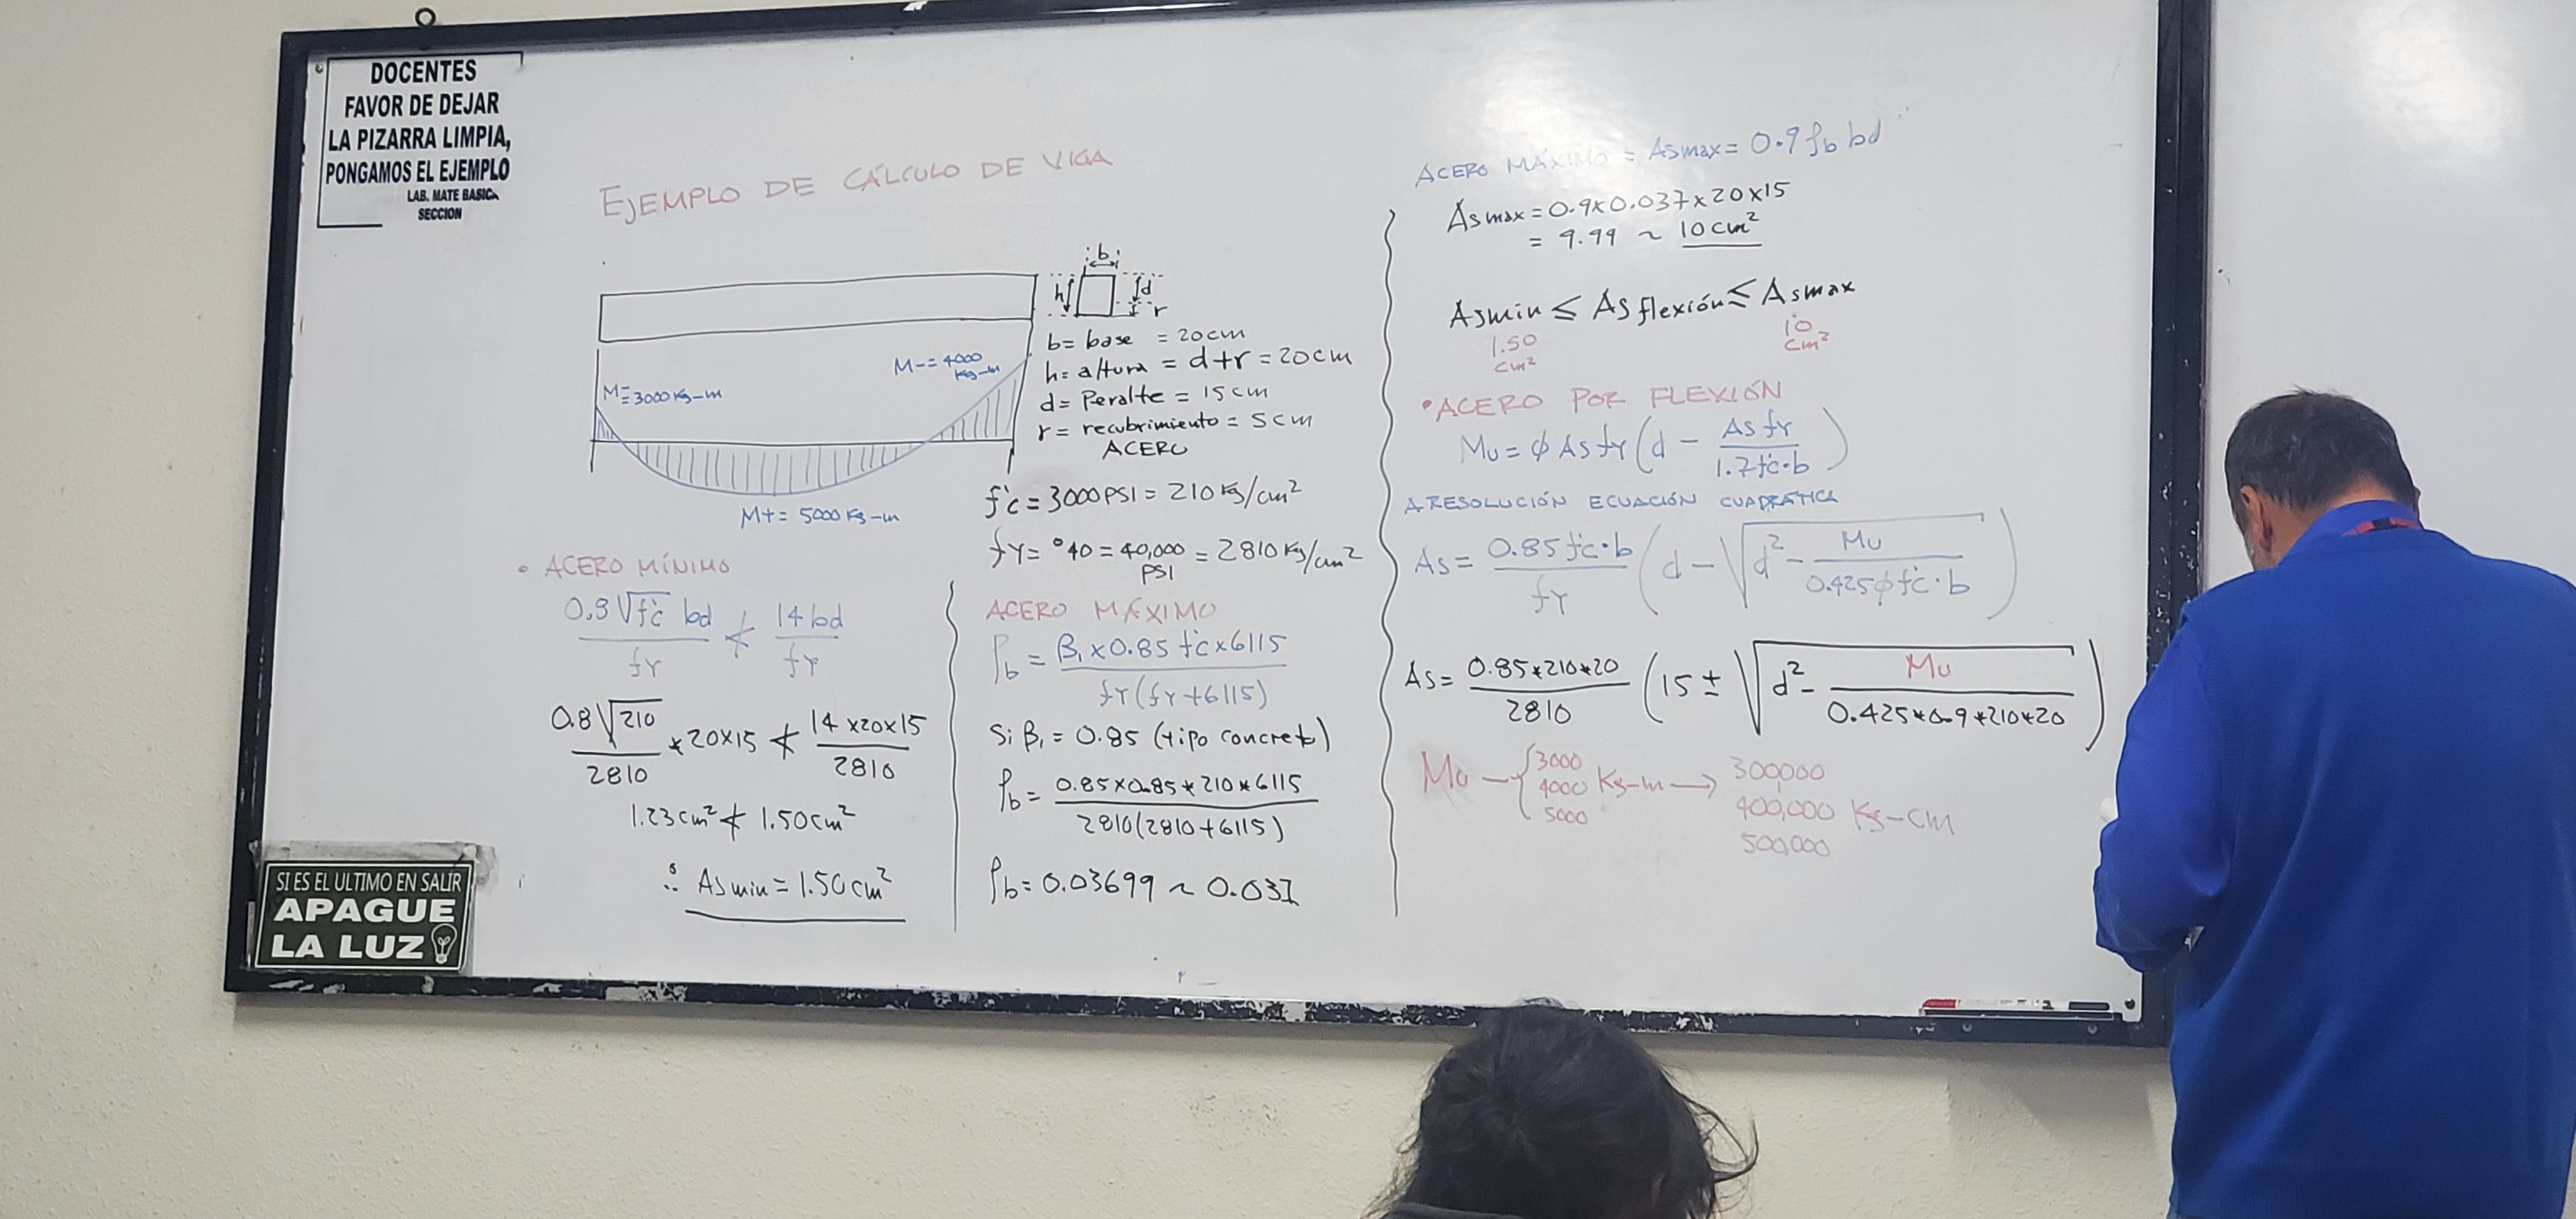 DOCENTES
FAVOR DE DEJAR
LA PIZARRA LIMPIA,
PONGAMOS EL EJEMPLO
LAB. MATE BASICA
SECCION
EJEMPLO DE CÁLCULO DE VIGA
b
h
d
r
M-=3000 Kg-m
M-=4000
Kg-m
M+= 5000 Kg-m
b= base = 20cm
h= altura = d+r = 20cm
d= Peralte = 15cm
r= recubrimiento = 5cm
ACERO
f'c = 3000 PSI = 210 Kg/cm²
fy= °40 = 40,000 = 2810 Kg/cm²
PSI
• ACERO MÍNIMO
0.8√f'c bd / fy ≮ 14bd / fy
0.8√210 / 2810 * 20x15 ≮ 14x20x15 / 2810
1.23cm² ≮ 1.50cm²
∴ Asmin = 1.50cm²
ACERO MÁXIMO
ρb = β₁x0.85 f'c x6115 / fy(fy+6115)
Si β₁ = 0.85 (tipo concreto)
ρb = 0.85x0.85*210*6115 / 2810(2810+6115)
ρb= 0.03699 ~ 0.037
ACERO MÁXIMO = Asmax= 0.9 ρb bd
Asmax=0.9x0.037x20x15
= 9.99 ~ 10cm²
Asmin ≤ As flexión ≤ Asmax
1.50
cm²
10
cm²
• ACERO POR FLEXIÓN
Mu = φ As fy (d - As fy / 1.7f'c·b)
A. RESOLUCIÓN ECUACIÓN CUADRÁTICA
As = 0.85 f'c·b / fy (d - √(d² - Mu / 0.425φf'c·b))
As= 0.85*210*20 / 2810 (15 ± √(d² - Mu / 0.425*0.9*210*20))
Mu → { 3000 4000 5000 Kg-m → 300,000 400,000 500,000 Kg-cm
SI ES EL ULTIMO EN SALIR
APAGUE
LA LUZ